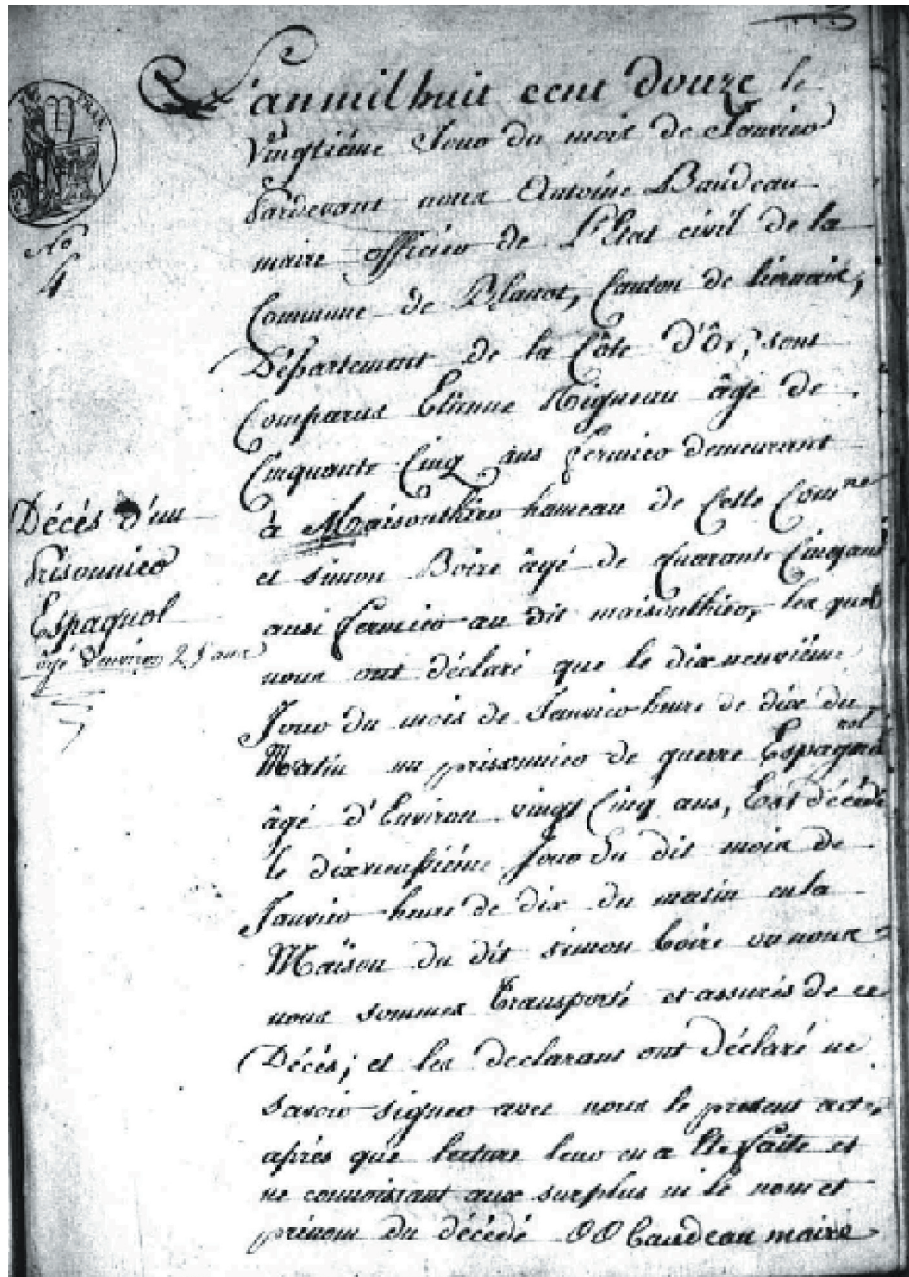 L'an mil huit cent douze le
vingtiéme Jour du mois de Janvier
Pardevant nous Antoine Baudeau
maire officier de L'Etat civil de la
Commune de Blanot, Canton de liernais,
Département de la Côte d'Or, sont
Comparus Etienne Migneau âgé de
Cinquante Cinq ans fermier demeurant
à Maisonthier hameau de Cette Com.ne
et simon Boire âgé de Quarante Cinq ans
ausi fermier au dit maisonthier, les quels
nous ont déclaré que le dixneuviéme
Jour du mois de Janvier heure de dix du
Matin un prisonnier de guerre Espagnol
âgé d'Environ vingt Cinq ans, Est décédé
le dixneufiéme Jour du dit mois de
Janvier heure de dix du matin en la
Maison du dit simon boire ou nous
nous sommes transporté et assurés de ce
Décès; et les declarans ont déclaré ne
savoir signer avec nous le present acte,
après que lecture leur en a Eté faite et
ne connoissant aux surplus ni le nom et
prénom du décédé Baudeau maire
No
4
Décés d'un
Prisonnier
Espagnol
âgé d'environ 25 ans